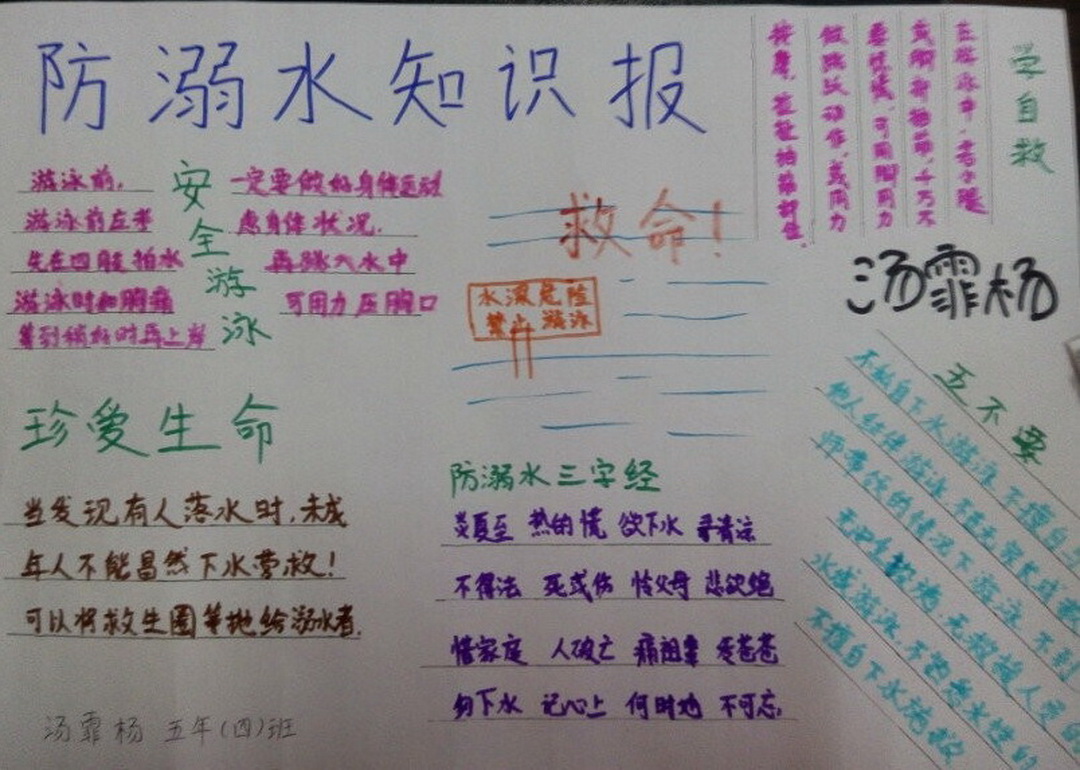 防溺水知识报
安全游泳
游泳前,一定要做好身体运动
游泳前应考虑身体状况.
先在四肢拍水 再跳入水中
游泳时如胸痛 可用力压胸口
等到稍好时再上岸
珍爱生命
当发现有人落水时,未成
年人不能冒然下水营救!
可以将救生圈等抛给溺水者.
汤霏杨 五年(四)班
救命!
水深危险
禁止游泳
防溺水三字经
炎夏至 热的慌 欲下水 寻清凉
不得法 死或伤 怜父母 悲欲绝
惜家庭 人破亡 痛祖辈 爸爸
勿下水 记心上 何时地 不可忘,
学自救
在游泳中,若小腿
或脚部抽筋,千万不
要惊慌,可用脚用力
做跳跃动作,或用力
按摩、拉扯抽筋部位.
汤霏杨
五不要
不私自下水游泳 不擅自与
他人结伴游泳 不在无家长或教
师带领的情况下游泳 不到
无安全设施,无救援人员的
水域游泳,不到不熟悉水性的
不擅自下水施救